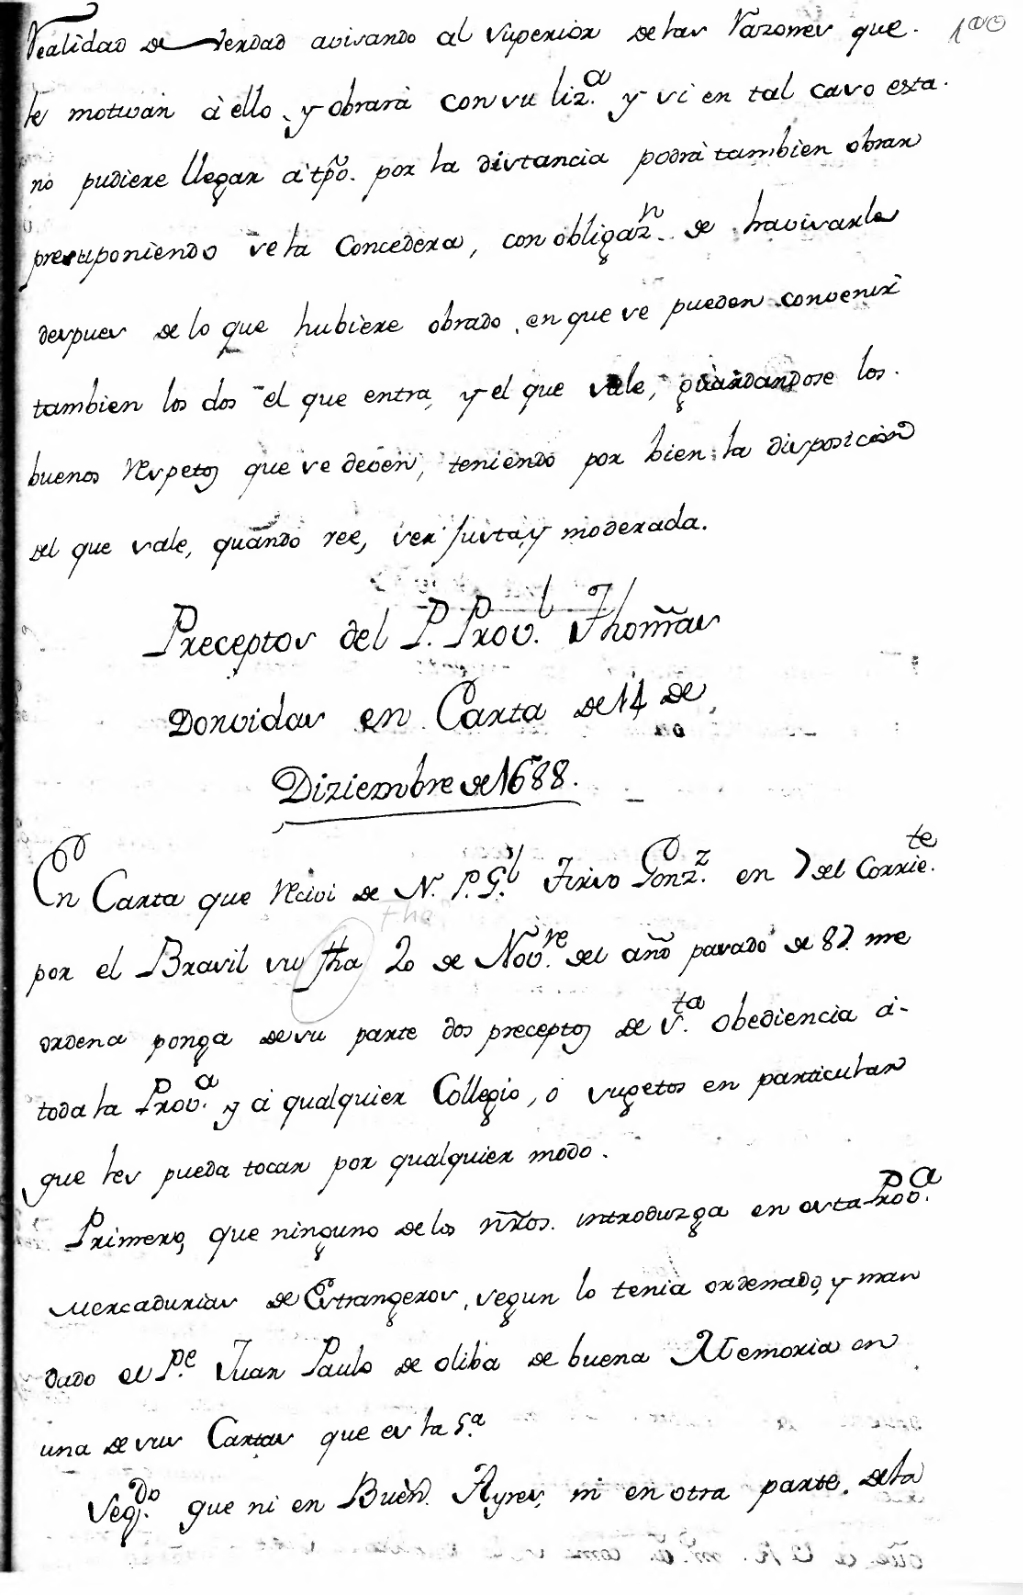 Realidad de verdad avisando al Superior de las Razones que. 100
le motivan à ello, y obrarà con su liz.ª y si en tal caso esta.
no pudiere llegar à tp̃o. por la distancia podrà tambien obrar
presuponiendo se la Concedera, con obligaz.n de havisarle
despues de lo que hubiere obrado, en que se pueden convenir
tambien los dos el que entra, y el que sale, guardandose los.
buenos respetos que se deven, teniendo por bien, la disposicion
del que sale, quando vee, ser justa, y moderada.
Preceptos del P. Prov.l Thomas
Donvidas en Carta de 14 de
Diziembre de 1688.
En Carta que recivi de N. P. G.l Tirso Gonz.z en 7 del Corrie.te
fha
por el Brasil su fha 20 de Nov.re del año pasado de 87. me
ordena ponga de su parte dos preceptos de S.ta obediencia à-
toda la Prov.a y à qualquier Collegio, ò sugetos en particular
que les pueda tocar por qualquier modo.
Primero, que ninguno de los nr̃os. introduzga en esta Prov.a
Mercadurias de Estrangeros, segun lo tenia ordenado, y man
dado el P.e Juan Paulo de oliba de buena Memoria en
una de sus Cartas que es la 5.ª
Seg.do que ni en Buen.s Ayres, ni en otra parte. de la